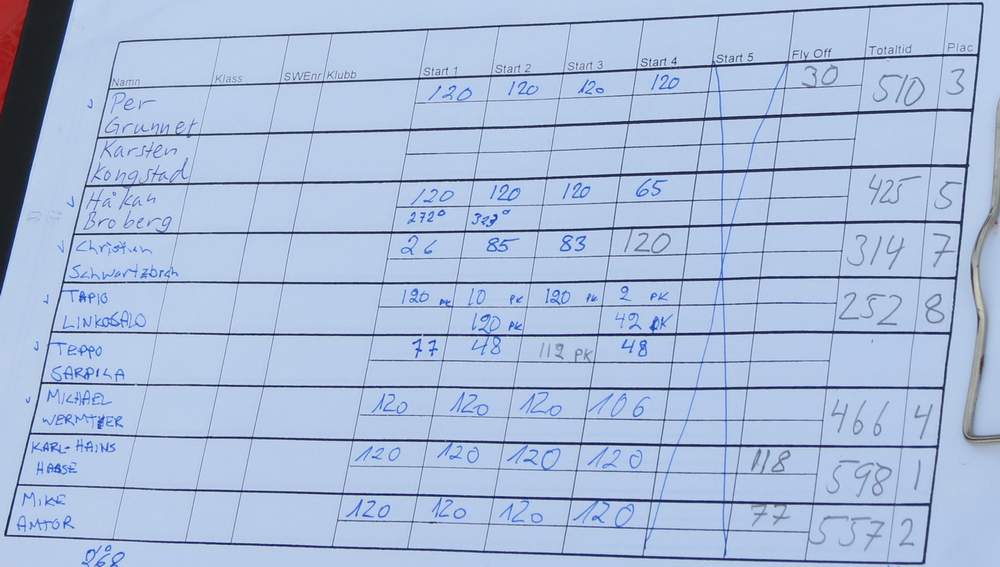 Namn Klass SWEnr Klubb Start 1 Start 2 Start 3 Start 4 Start 5 Fly Off Totaltid Plac
Per 120 120 120 120 30 510 3
Grunnet
Karsten
Kongstad
Håkan 120 120 120 65 425 5
Broberg 272°
Christian 26 85 83 120 314 7
Schwartzbach
TAPIO 120 PK 10 PK 120 PK 2 PK 252 8
LINKOSALO 120 PK 42 PK
TEPPO 77 48 112 PK 48
SARPILA
MICHAEL 120 120 120 106 466 4
WERMTER
KARL-HAINS 120 120 120 120 118 598 1
HAASE
MIKE 120 120 120 120 77 557 2
AMTOR
268